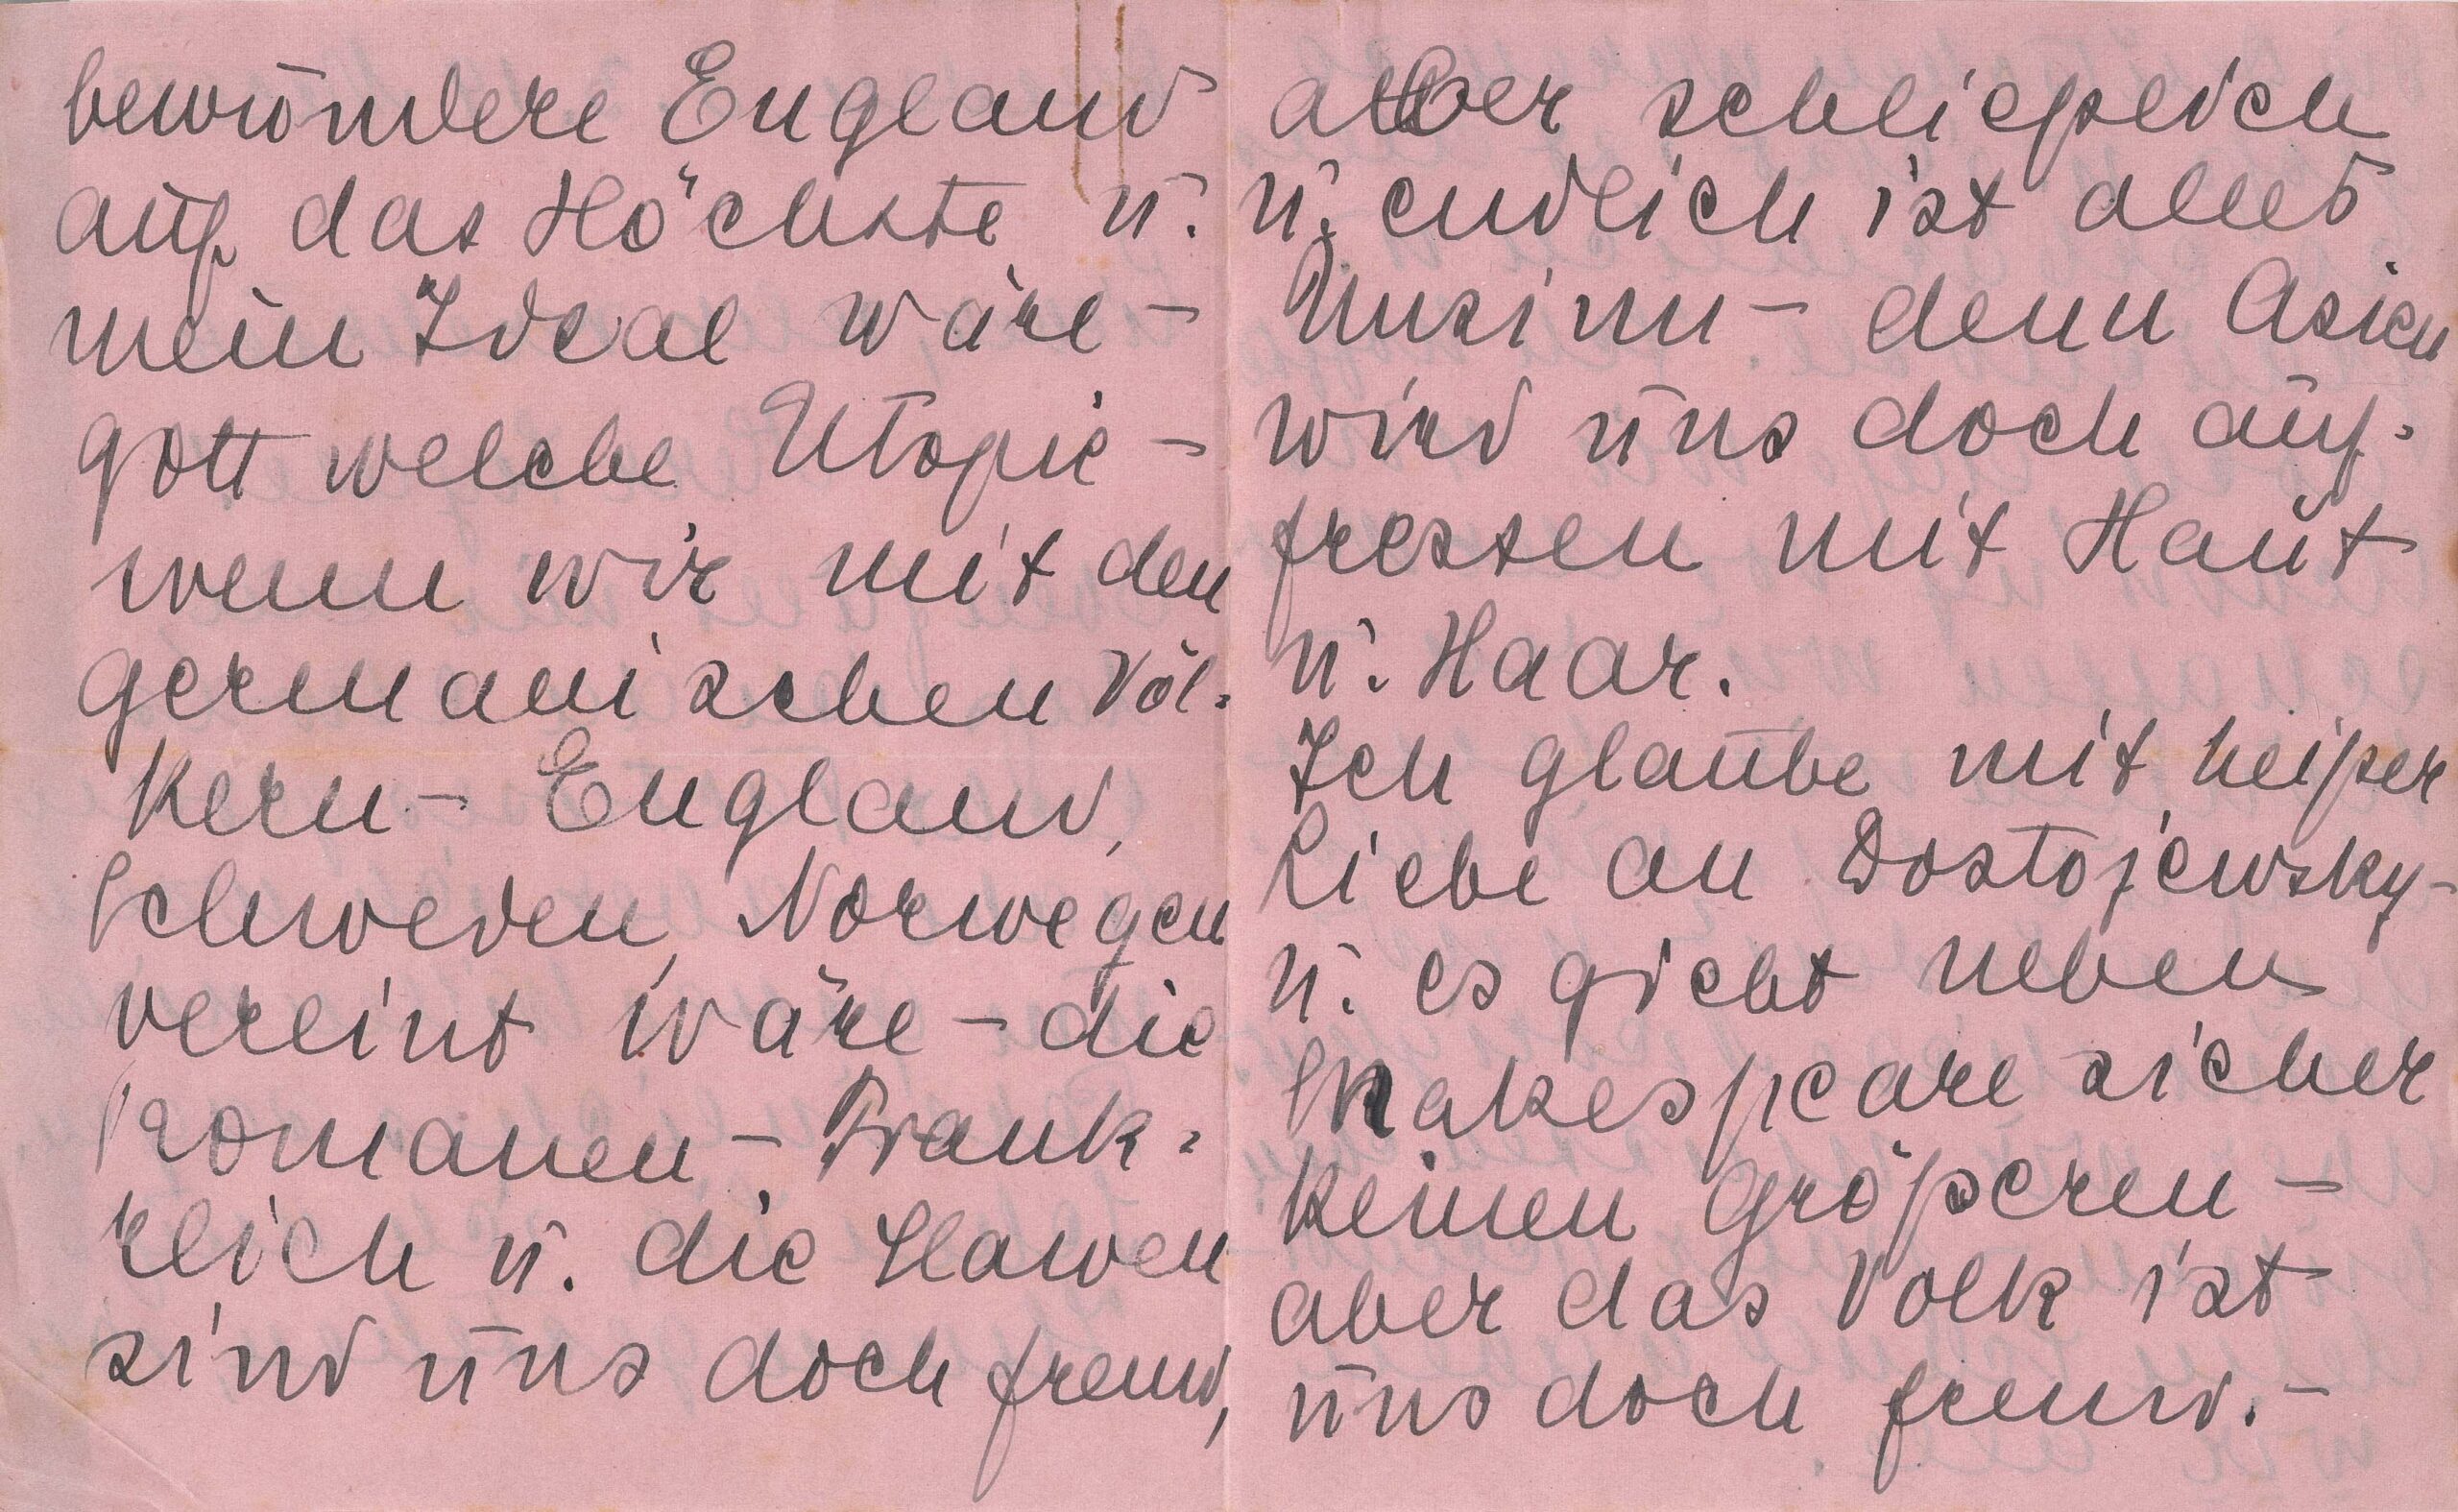 bewundere England
auf das Höchste u.
mein Ideal wäre –
Gott welche Utopie –
wenn wir mit den
germanischen Völ-
kern – England,
Schweden, Norwegen
vereint wäre – die
Romanen – Frank-
reich u. die Slawen
sind uns doch fremd,
aber schließlich
u. endlich ist alles
Unsinn – denn Asien
wird uns doch auf-
fressen mit Haut
u. Haar.
Ich glaube mit heißer
Liebe an Dostojewsky –
u. es giebt neben
Shakespeare sicher
keinen Größeren –
aber das Volk ist
uns doch fremd. –